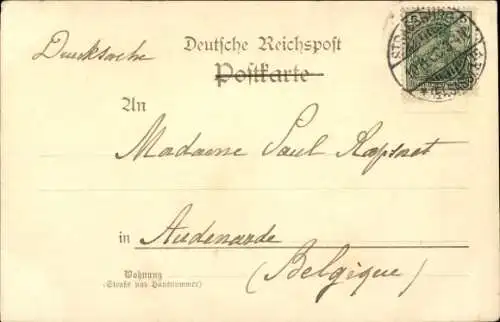 Drucksache
Deutsche Reichspost
Postkarte
An
Madame Paul Raepsaet
in Audenarde
(Belgique)
Wohnung
(Straße und Hausnummer)
STRASSBURG